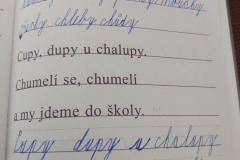 chleby chůdy
Cupy, dupy u chalupy.
Chumelí se, chumelí
a my jdeme do školy.
Cupy dupy u chalupy